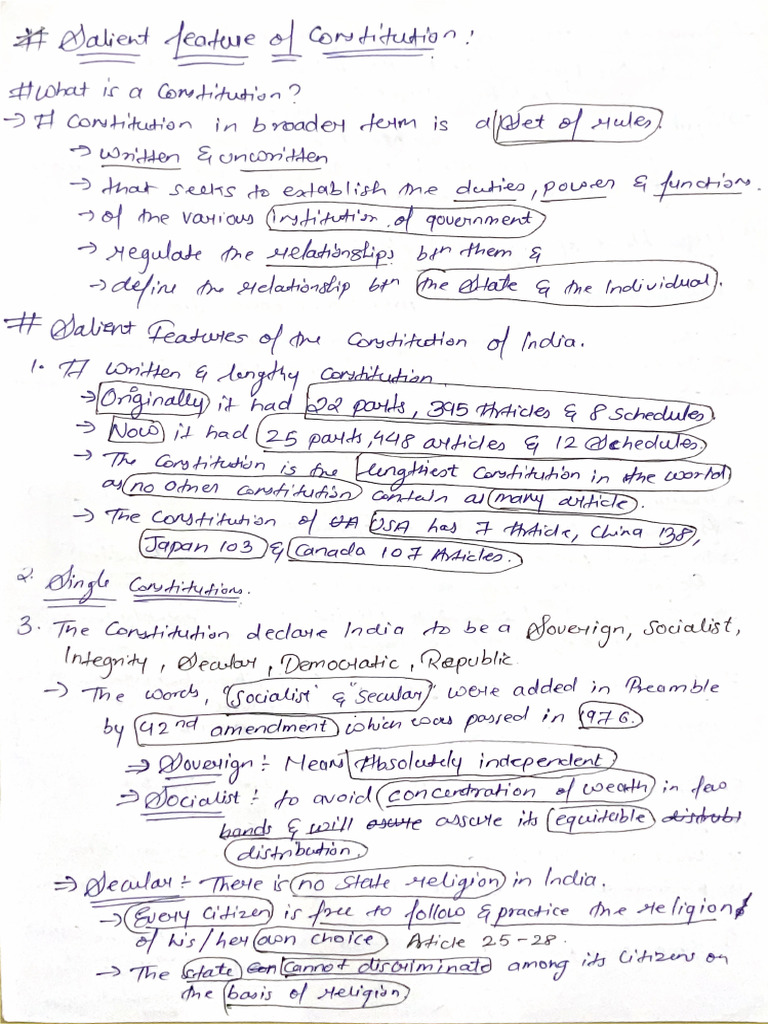 # Salient feature of Constitution:
# What is a Constitution?
→ A Constitution in broader term is a set of rules.
→ written & unwritten
→ that seeks to establish the duties, power & function.
→ of the various institution of government
→ regulate the relationships btn them &
→ define the relationship btn the State & the Individual.
# Salient Features of the Constitution of India.
1. A written & lengthy constitution
→ Originally it had 22 parts, 395 Articles & 8 Schedules.
→ Now it had 25 parts, 448 articles & 12 Schedules
→ The Constitution is the lengthiest Constitution in the world
as no other constitution contain as many article.
→ The Constitution of UA USA has 7 Article, China 138,
Japan 103 & Canada 107 Articles.
2. Single Constitutions.
3. The Constitution declare India to be a Soverign, Socialist,
Integrity, Secular, Democratic, Republic.
→ The words, 'Socialist' & "Secular" were added in Preamble
by 42nd amendment which was passed in 1976.
⇒ Soverign :- Mean Absolutely independent
⇒ Socialist :- to avoid concentration of wealth in few
hands & will assure assure its equitable distubt
distribution.
⇒ Secular :- There is no state religion in India.
→ Every Citizen is free to follow & practice the religion
of his/her own choice Article 25-28.
→ The state can cannot discriminate among its Citizens on
the basis of religion